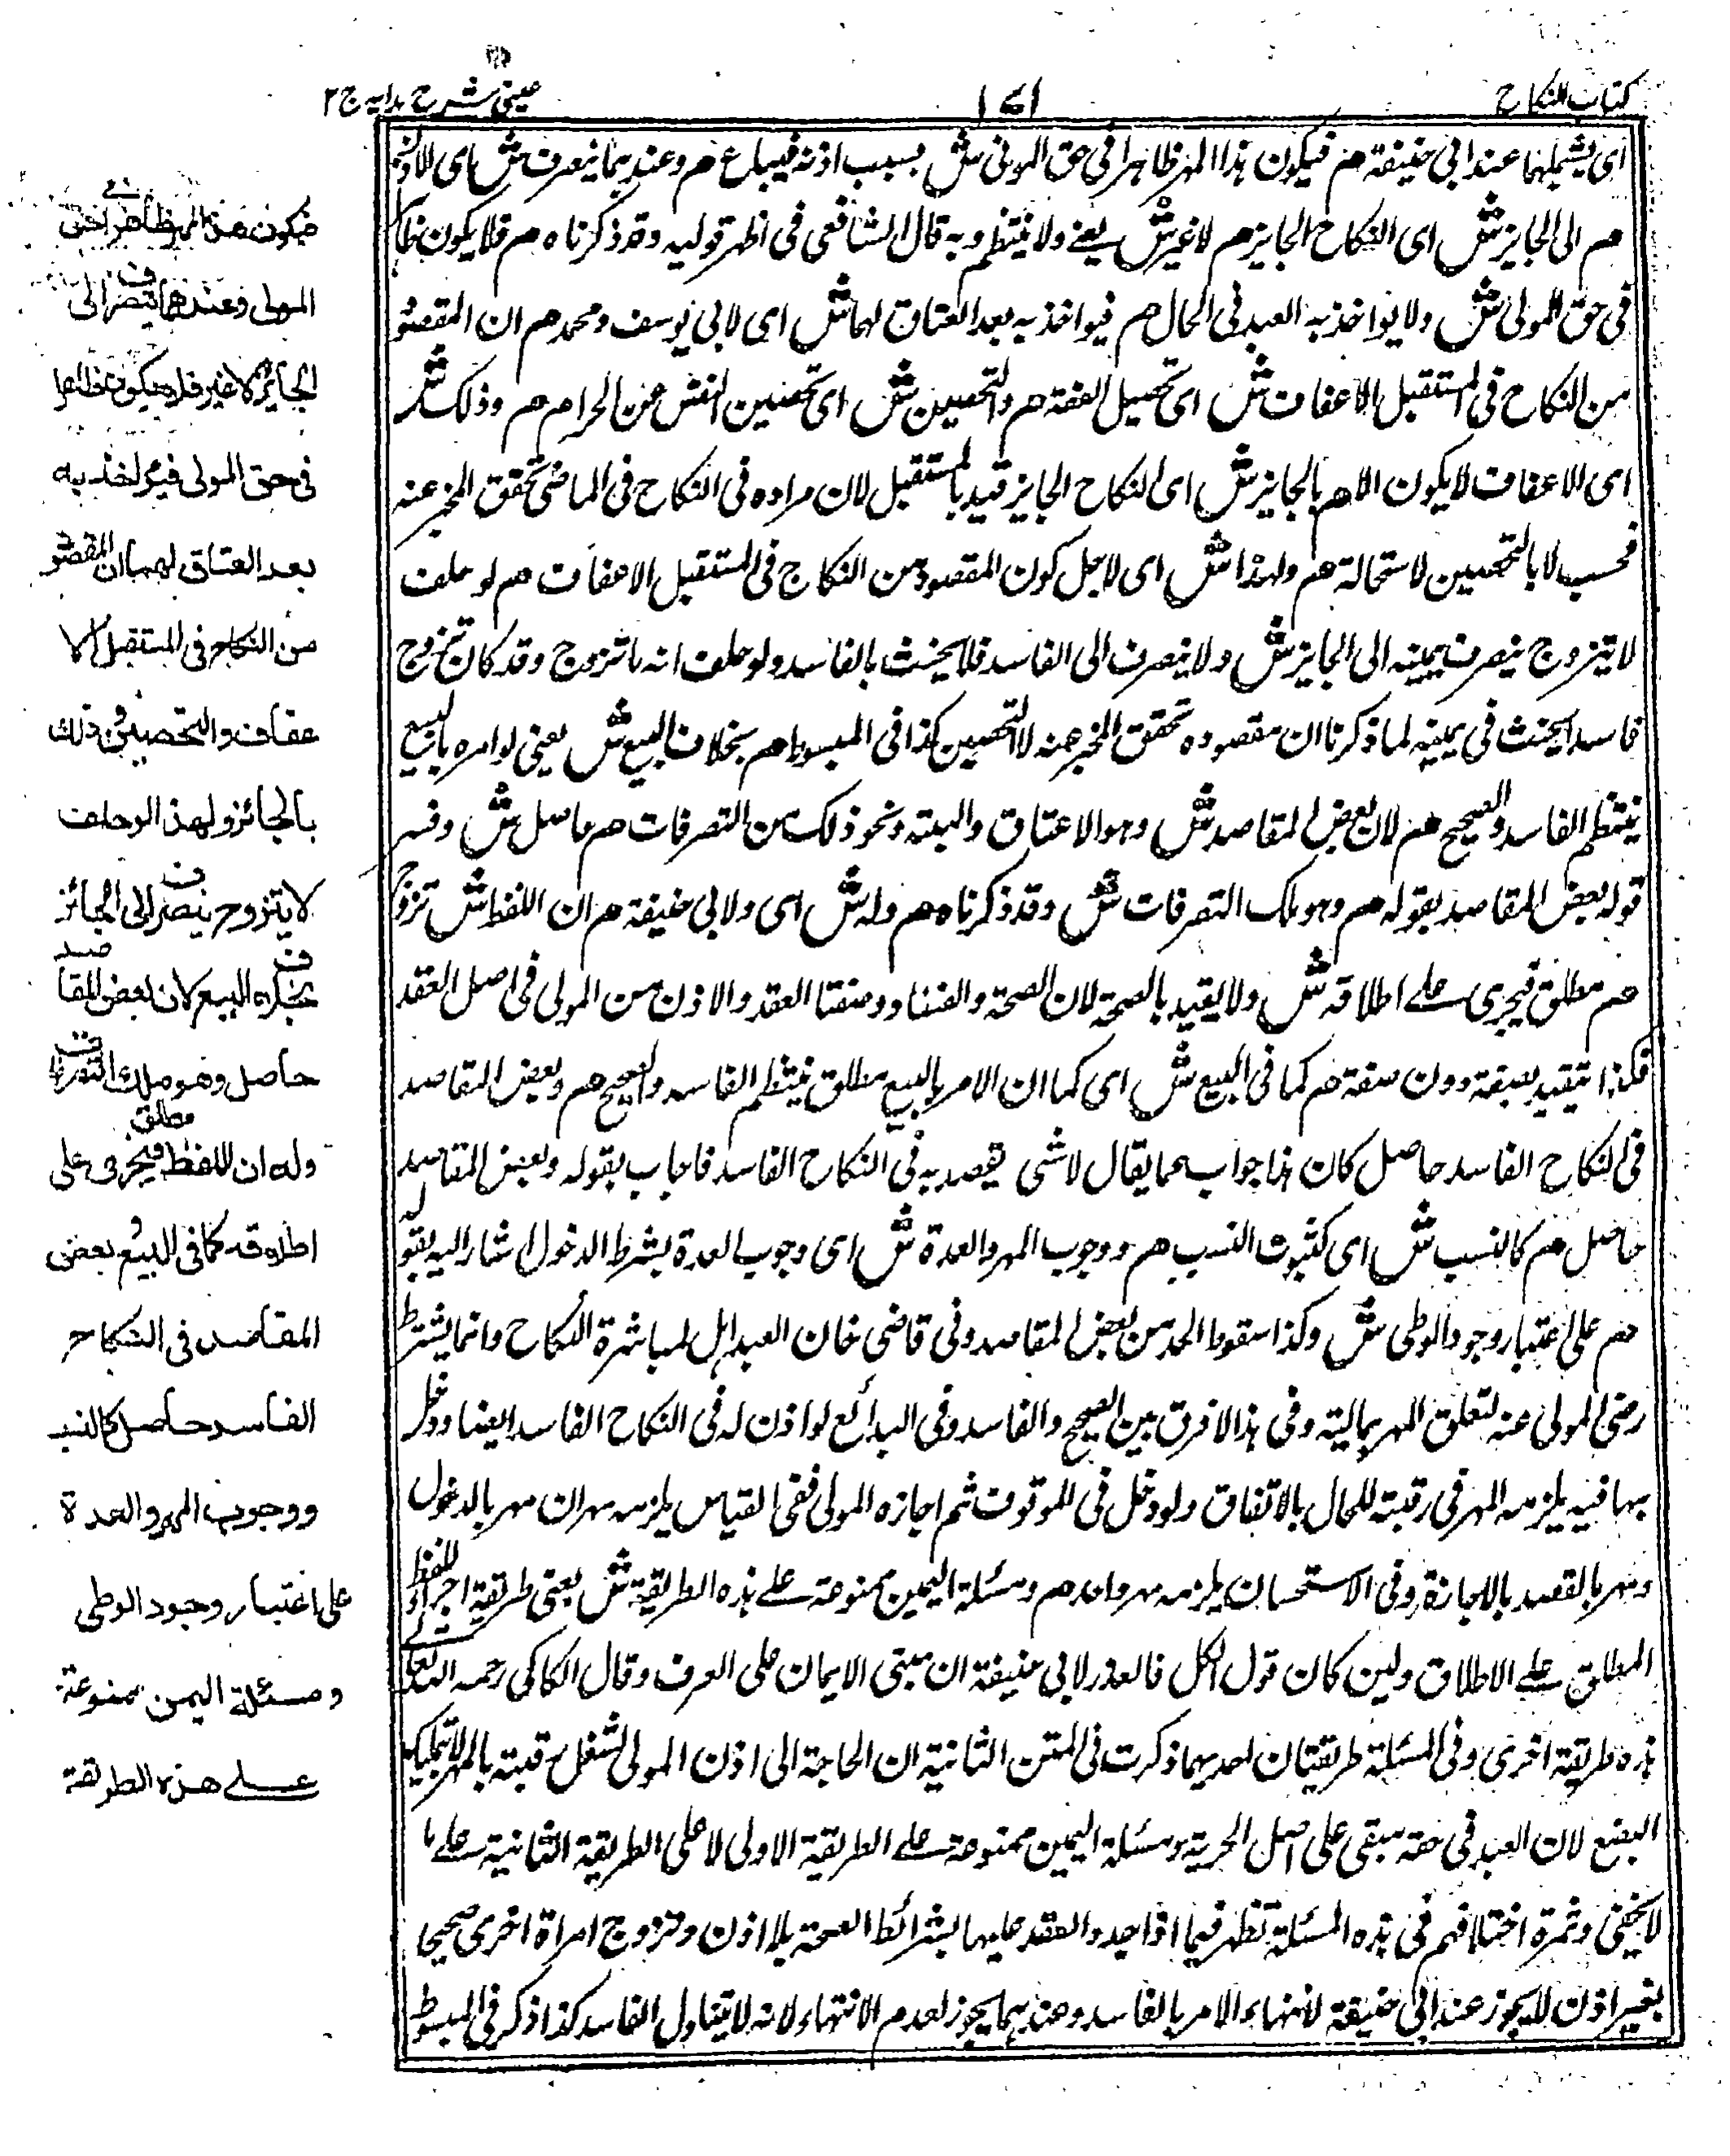 كتاب النكاح
١٧١
عينى شرح هدايه ج ٢
اى يشملهما عند ابى حنيفة هم فيكون هذا المهر ظاهرا فى حق المولى ش بسبب اذنه فيباع هم وعندهما ينصرف ش اى الاذن
هم الى الجايز ش اى النكاح الجايز هم لا غير ش يعنى ولا ينتظم وبه قال الشافعى فى اظهر قوليه وقد ذكرناه هم فلا يكون ظاهرا
فى حق المولى ش ولا يواخذ به العبد فى الحال هم فيواخذ به بعد العتاق لهما ش اى لابى يوسف ومحمد هم ان المقصود
من النكاح فى المستقبل الاعفاف ش اى تحصيل العفة هم والتحصين ش اى تحصين النفس عن الحرام هم وذلك ش
اى الاعفاف لا يكون الا هم بالجايز ش اى النكاح الجايز قيد بالمستقبل لان مراده فى النكاح فى الماضى تحقق المخبر عنه
فحسب لا بالتحصين لاستحالة هم ولهذا ش اى لاجل كون المقصود من النكاح فى المستقبل الاعفاف هم لو حلف
لا يتزوج ينصرف يمينه الى الجايز ش ولا ينصرف الى الفاسد فلا يحنث بالفاسد ولو حلف انه ما تزوج وقد كان تزوج
فاسدا يحنث فى يمينه لما ذكرنا ان مقصوده تحقق المخبر عنه لا التحصين كذا فى المبسوط هم بخلاف البيع ش يعنى لو امره بالبيع
ينتظم الفاسد والصحيح هم لان بعض المقاصد ش وهو الاعتاق والهبته ونحو ذلك من التصرفات هم حاصل ش وفسر
قوله بعض المقاصد بقوله هم وهو ملك التصرفات ش وقد ذكرناه هم وله ش اى ولابى حنيفة هم ان اللفظ ش تزوج
هم مطلق فيجرى على اطلاقه ش ولا يقيد بالصحة لان الصحة والفساد وصفتا العقد والاذن من المولى فى اصل العقد
فكذا يتقيد بصفة دون صفة هم كما فى البيع ش اى كما ان الامر بالبيع مطلق ينتظم الفاسد والصحيح هم وبعض المقاصد
فى النكاح الفاسد حاصل كان هذا جواب عما يقال لا شى يقصد به فى النكاح الفاسد فاجاب بقوله وبعض المقاصد
حاصل هم كالنسب ش اى كثبوت النسب هم ووجوب المهر والعدة ش اى وجوب العدة بشرط الدخول اشار اليه بقوله
هم على اعتبار وجود الوطى ش وكذا سقوط الحد من بعض المقاصد وفى قاضى خان العبد اهل لمباشرة النكاح وانما يشترط
رضى المولى عنه لتعلق المهر بماليته وفى هذا لا فرق بين الصحيح والفاسد وفى البدائع لو اذن له فى النكاح الفاسد ايضا ودخل
بها فيه يلزمه المهر فى رقبته للحال بالاتفاق ولو دخل فى الموقوف ثم اجازه المولى ففى القياس يلزمه مهران مهر بالدخول
ومهر بالقصد بالاجازة وفى الاستحسان يلزمه مهر واحد هم ومسئلة اليمين ممنوعة على هذه الطريقة ش يعنى طريقة اجراء اللفظ
المطلق على الاطلاق ولين كان قول الكل فالعذر لابى حنيفة ان مبنى الايمان على العرف وقال الكاكى رحمه الله تعالى
هذه طريقة اخرى وفى المسئلة طريقتان احديهما ذكرت فى المتن الثانية ان الحاجة الى اذن المولى لشغل رقبته بالمهر لا تمليك
البضع لان العبد فى حقه مبقى على اصل الحرية ومسئلة اليمين ممنوعة على الطريقة الاولى لا على الطريقة الثانية على ما
لا يخفى وثمرة اختلافهم فى هذه المسئلة تظهر فيما اذا جدد العقد عليها بشرائط الصحة بلا اذن وتزوج امراة اخرى صحيحا
بغير اذن لا يجوز عند ابى حنيفة لانتهاء الامر بالفاسد وعندهما يجوز لعدم الانتهاء لانه لا يتناول الفاسد كذا ذكر فى المبسوط
فيكون هذا المهر ظاهرا فى حق
المولى وعندهما ينصرف الى
الجائز لا غير فلا يكون ظاهرا
فى حق المولى فيؤاخذ به
بعد العتاق لهما ان المقصود
من النكاح فى المستقبل الا
عفاف والتحصين وذلك
بالجائز ولهذا لو حلف
لا يتزوج ينصرف الى الجائز
بخلاف البيع لان بعض المقاصد
حاصل وهو ملك التصرفات
وله ان اللفظ مطلق فيجرى على
اطلاقه كما فى البيع وبعض
المقاصد فى النكاح
الفاسد حاصل كالنسب
ووجوب المهر والعدة
على اعتبار وجود الوطى
ومسئلة اليمين ممنوعة
على هذه الطريقة